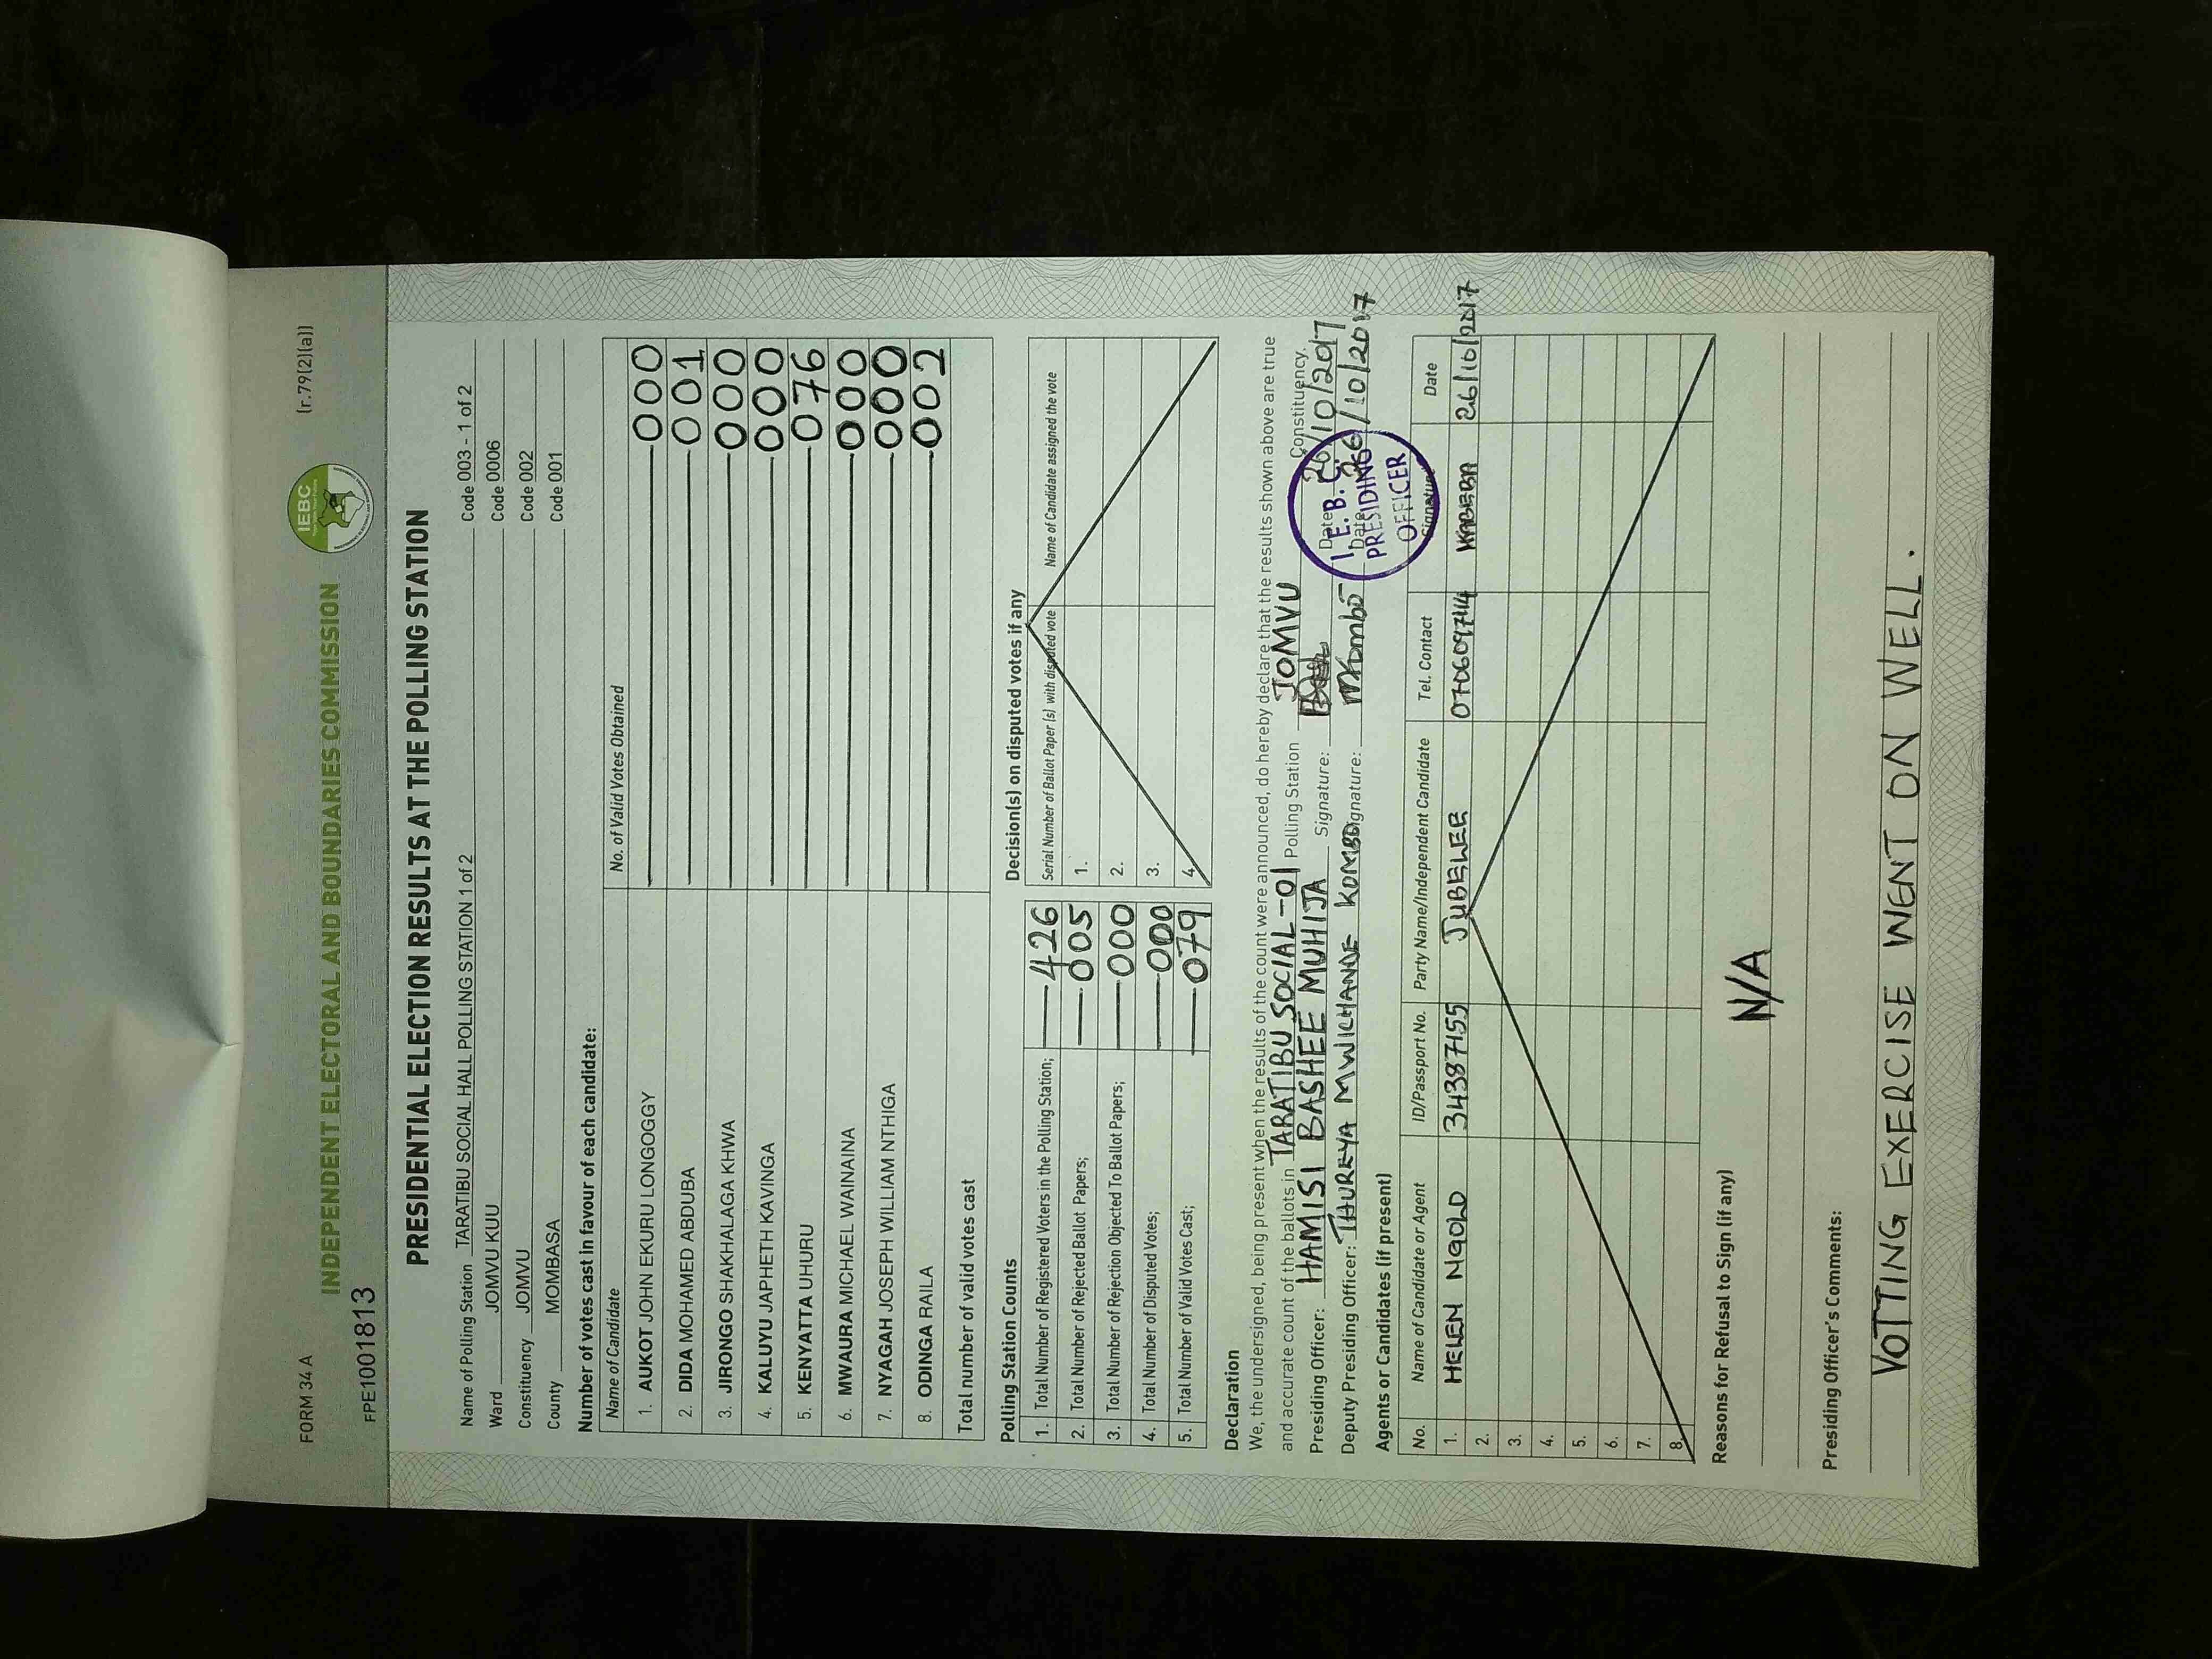 FORM 34 A
(r.79(2)(a))
INDEPENDENT ELECTORAL AND BOUNDARIES COMMISSION
IEBC
FPE1001813
PRESIDENTIAL ELECTION RESULTS AT THE POLLING STATION
Name of Polling Station TARATIBU SOCIAL HALL POLLING STATION 1 of 2 Code 003 - 1 of 2
Ward JOMVU KUU Code 0006
Constituency JOMVU Code 002
County MOMBASA Code 001
Number of votes cast in favour of each candidate:
Name of Candidate No. of Valid Votes Obtained
1. AUKOT JOHN EKURU LONGOGGY 000
2. DIDA MOHAMED ABDUBA 001
3. JIRONGO SHAKHALAGA KHWA 000
4. KALUYU JAPHETH KAVINGA 000
5. KENYATTA UHURU 076
6. MWAURA MICHAEL WAINAINA 000
7. NYAGAH JOSEPH WILLIAM NTHIGA 000
8. ODINGA RAILA 002
Total number of valid votes cast
Polling Station Counts
1. Total Number of Registered Voters in the Polling Station; 426
2. Total Number of Rejected Ballot Papers; 005
3. Total Number of Rejection Objected To Ballot Papers; 000
4. Total Number of Disputed Votes; 000
5. Total Number of Valid Votes Cast; 079
Decision(s) on disputed votes if any
Serial Number of Ballot Paper (s) with disputed vote Name of Candidate assigned the vote
1.
2.
3.
4.
Declaration
We, the undersigned, being present when the results of the count were announced, do hereby declare that the results shown above are true
and accurate count of the ballots in TARATIBU SOCIAL-01 Polling Station JOMVU Constituency.
Presiding Officer: HAMISI BASHEE MUHIJA Signature: Date 26/10/2017
Deputy Presiding Officer: THUREYA MWICHANDE KOMBO Signature: Mkombo Date 26/10/2017
I.E.B.C.
PRESIDING
OFFICER
Agents or Candidates (if present)
No. Name of Candidate or Agent ID/Passport No. Party Name/Independent Candidate Tel. Contact Signature Date
1. HELEN NGOLO 34387155 JUBELEE 0706097414 26/10/2017
2.
3.
4.
5.
6.
7.
8.
Reasons for Refusal to Sign (if any)
N/A
Presiding Officer's Comments:
VOTTING EXERCISE WENT ON WELL.